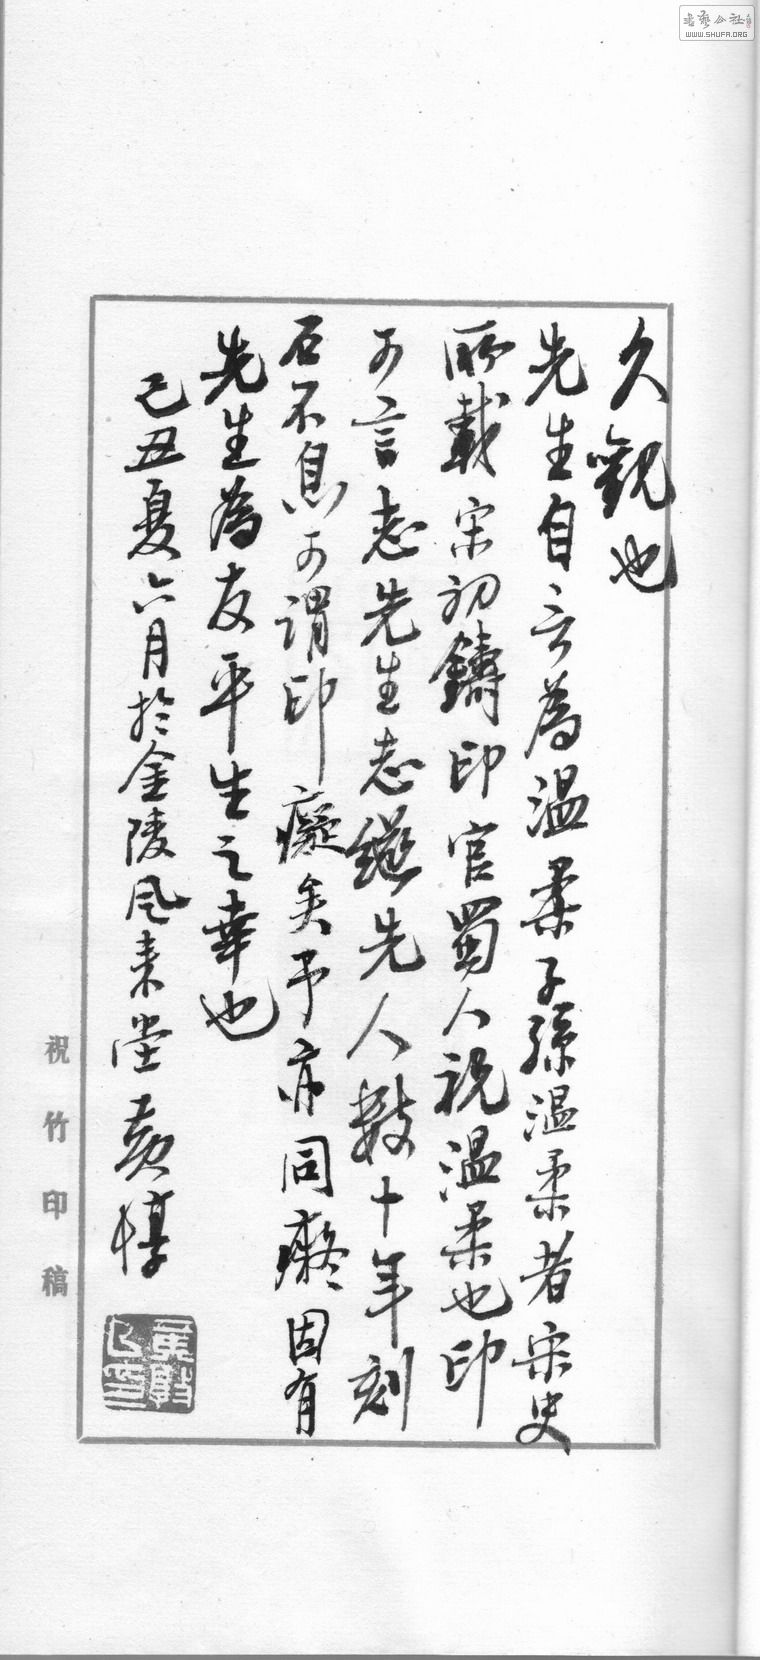 久觀也
先生自言為溫柔子孫溫柔者宋史
所載宋初鑄印官蜀人祝溫柔也印
可言志先生志繼先人數十年刻
石不息可謂印癡矣予亦同癡固有
先生為友平生之幸也
己丑夏六月於金陵風來堂黃惇
祝竹印稿
書藝公社
WWW.SHUFA.ORG